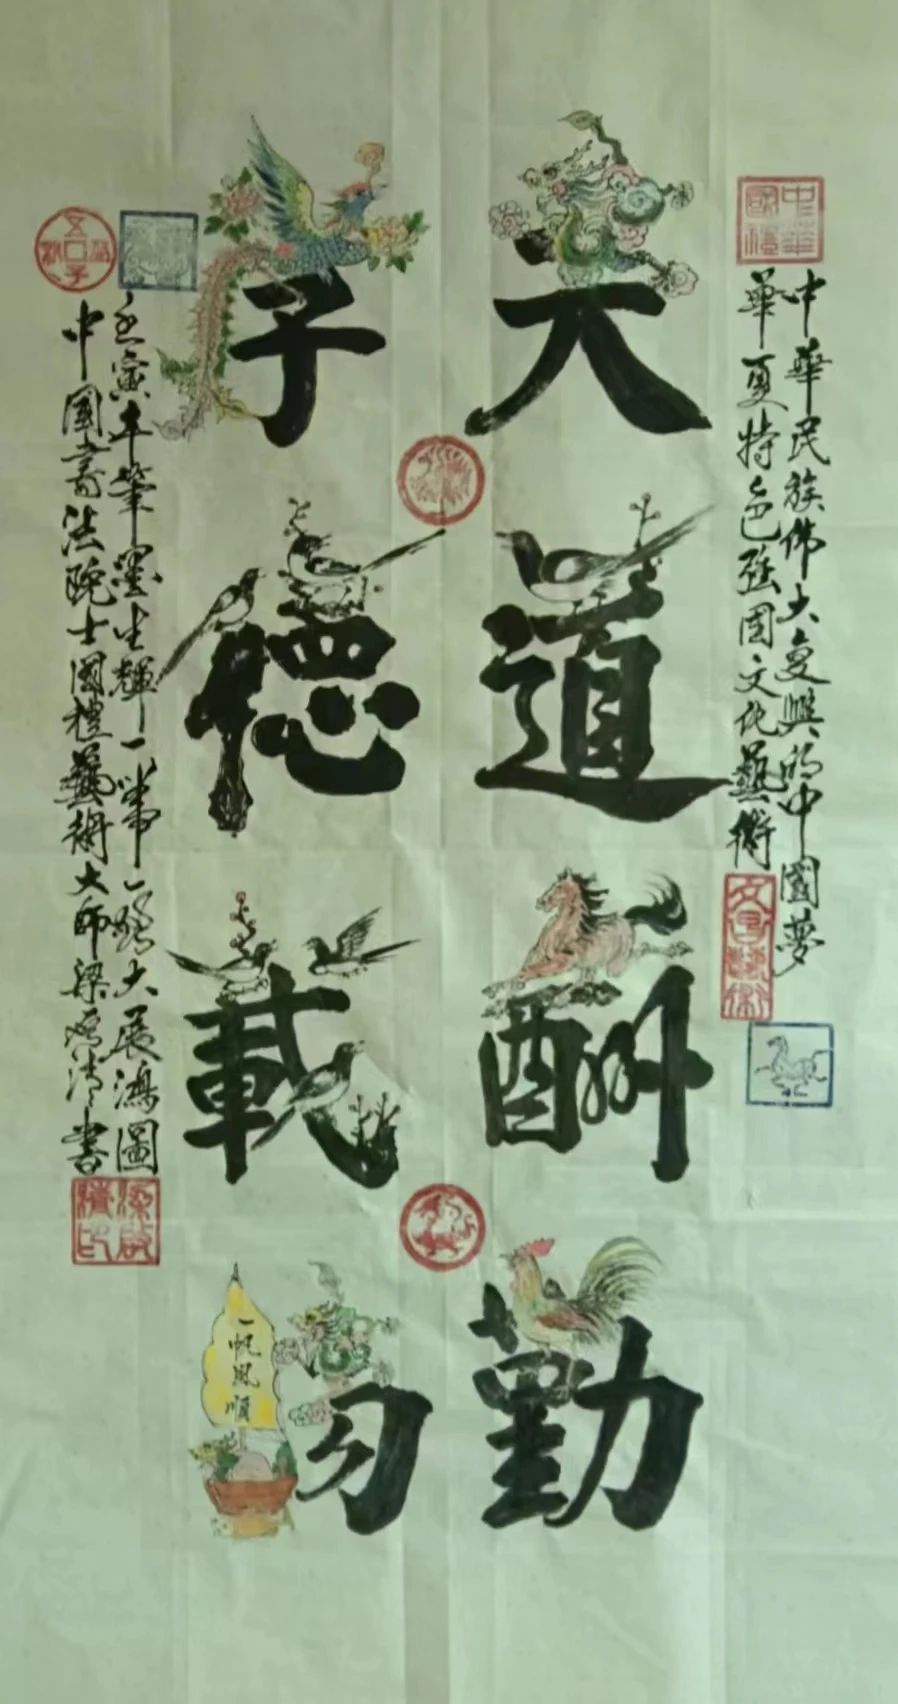 中華國禮
中華民族伟大复興的中國夢
華夏特色强国文化藝術
天道酬勤
厚德載物
一帆風順
壬寅年筆墨生輝一筆一大展鴻圖
中國書法院士國禮藝術大師梁清書